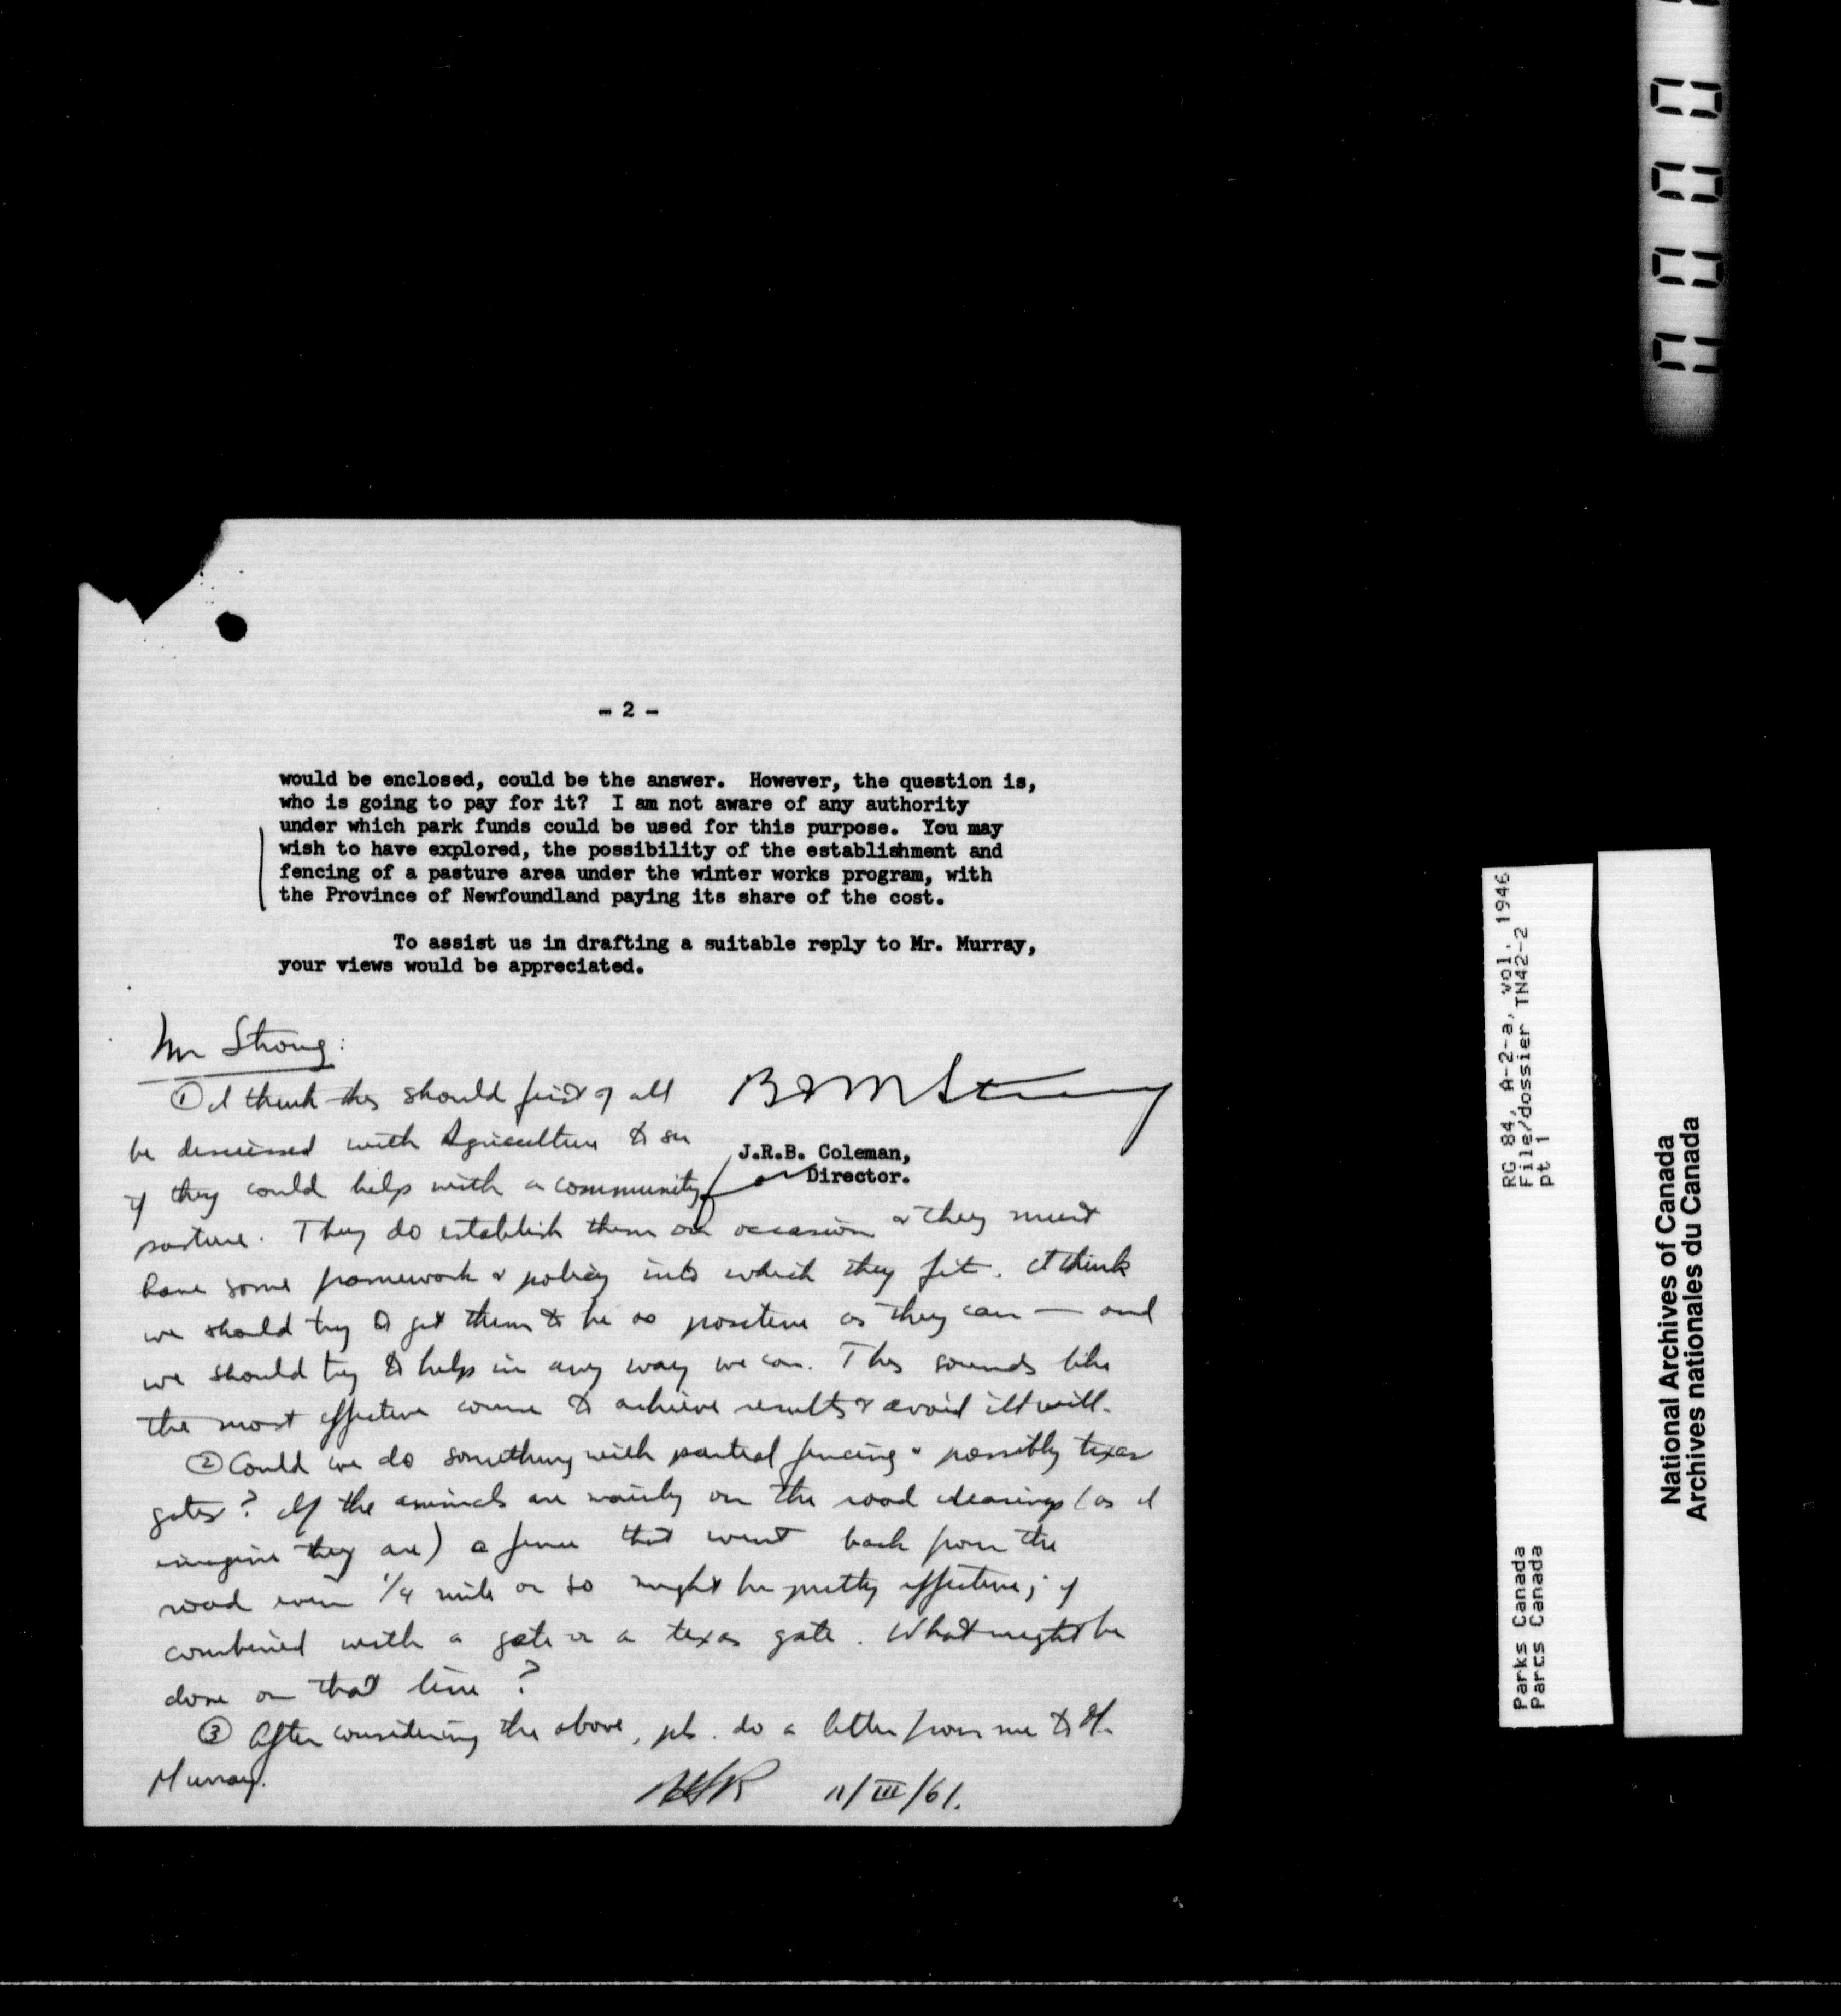 - 2 -
would be enclosed, could be the answer. However, the question is,
who is going to pay for it? I am not aware of any authority
under which park funds could be used for this purpose. You may
wish to have explored, the possibility of the establishment and
fencing of a pasture area under the winter works program, with
the Province of Newfoundland paying its share of the cost.
To assist us in drafting a suitable reply to Mr. Murray,
your views would be appreciated.
Mr Strong:
① I think this should first of all
be discussed with Agriculture to see
if they could help with a community
pasture. They do establish them on occasion & they must
have some framework & policy into which they fit. I think
we should try to get them to be as positive as they can — and
we should try to help in any way we can. This sounds like
the most effective course to achieve results & avoid ill will.
J.R.B. Coleman,
Director.
② Could we do something with partial fencing & possibly texas
gates? If the animals are mainly on the road clearings (as I
imagine they are) a fence that went back from the
road even 1/4 mile or so might be pretty effective; if
combined with a gate or a texas gate. What might be
done on that line?
③ After considering the above, pls. do a letter from me to Mr.
Murray.
11/III/61.
RG 84, A-2-a, vol. 1946
File/dossier TN42-2
pt 1
Parks Canada
Parcs Canada
National Archives of Canada
Archives nationales du Canada